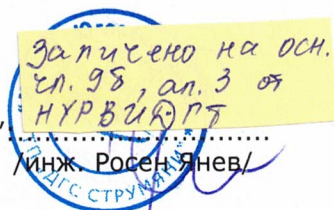 Заличено на осн.
чл. 98, ал. 3 от
НУРВИДГТ
/инж. Росен Янев/
ДГС СТРУМЯНИ